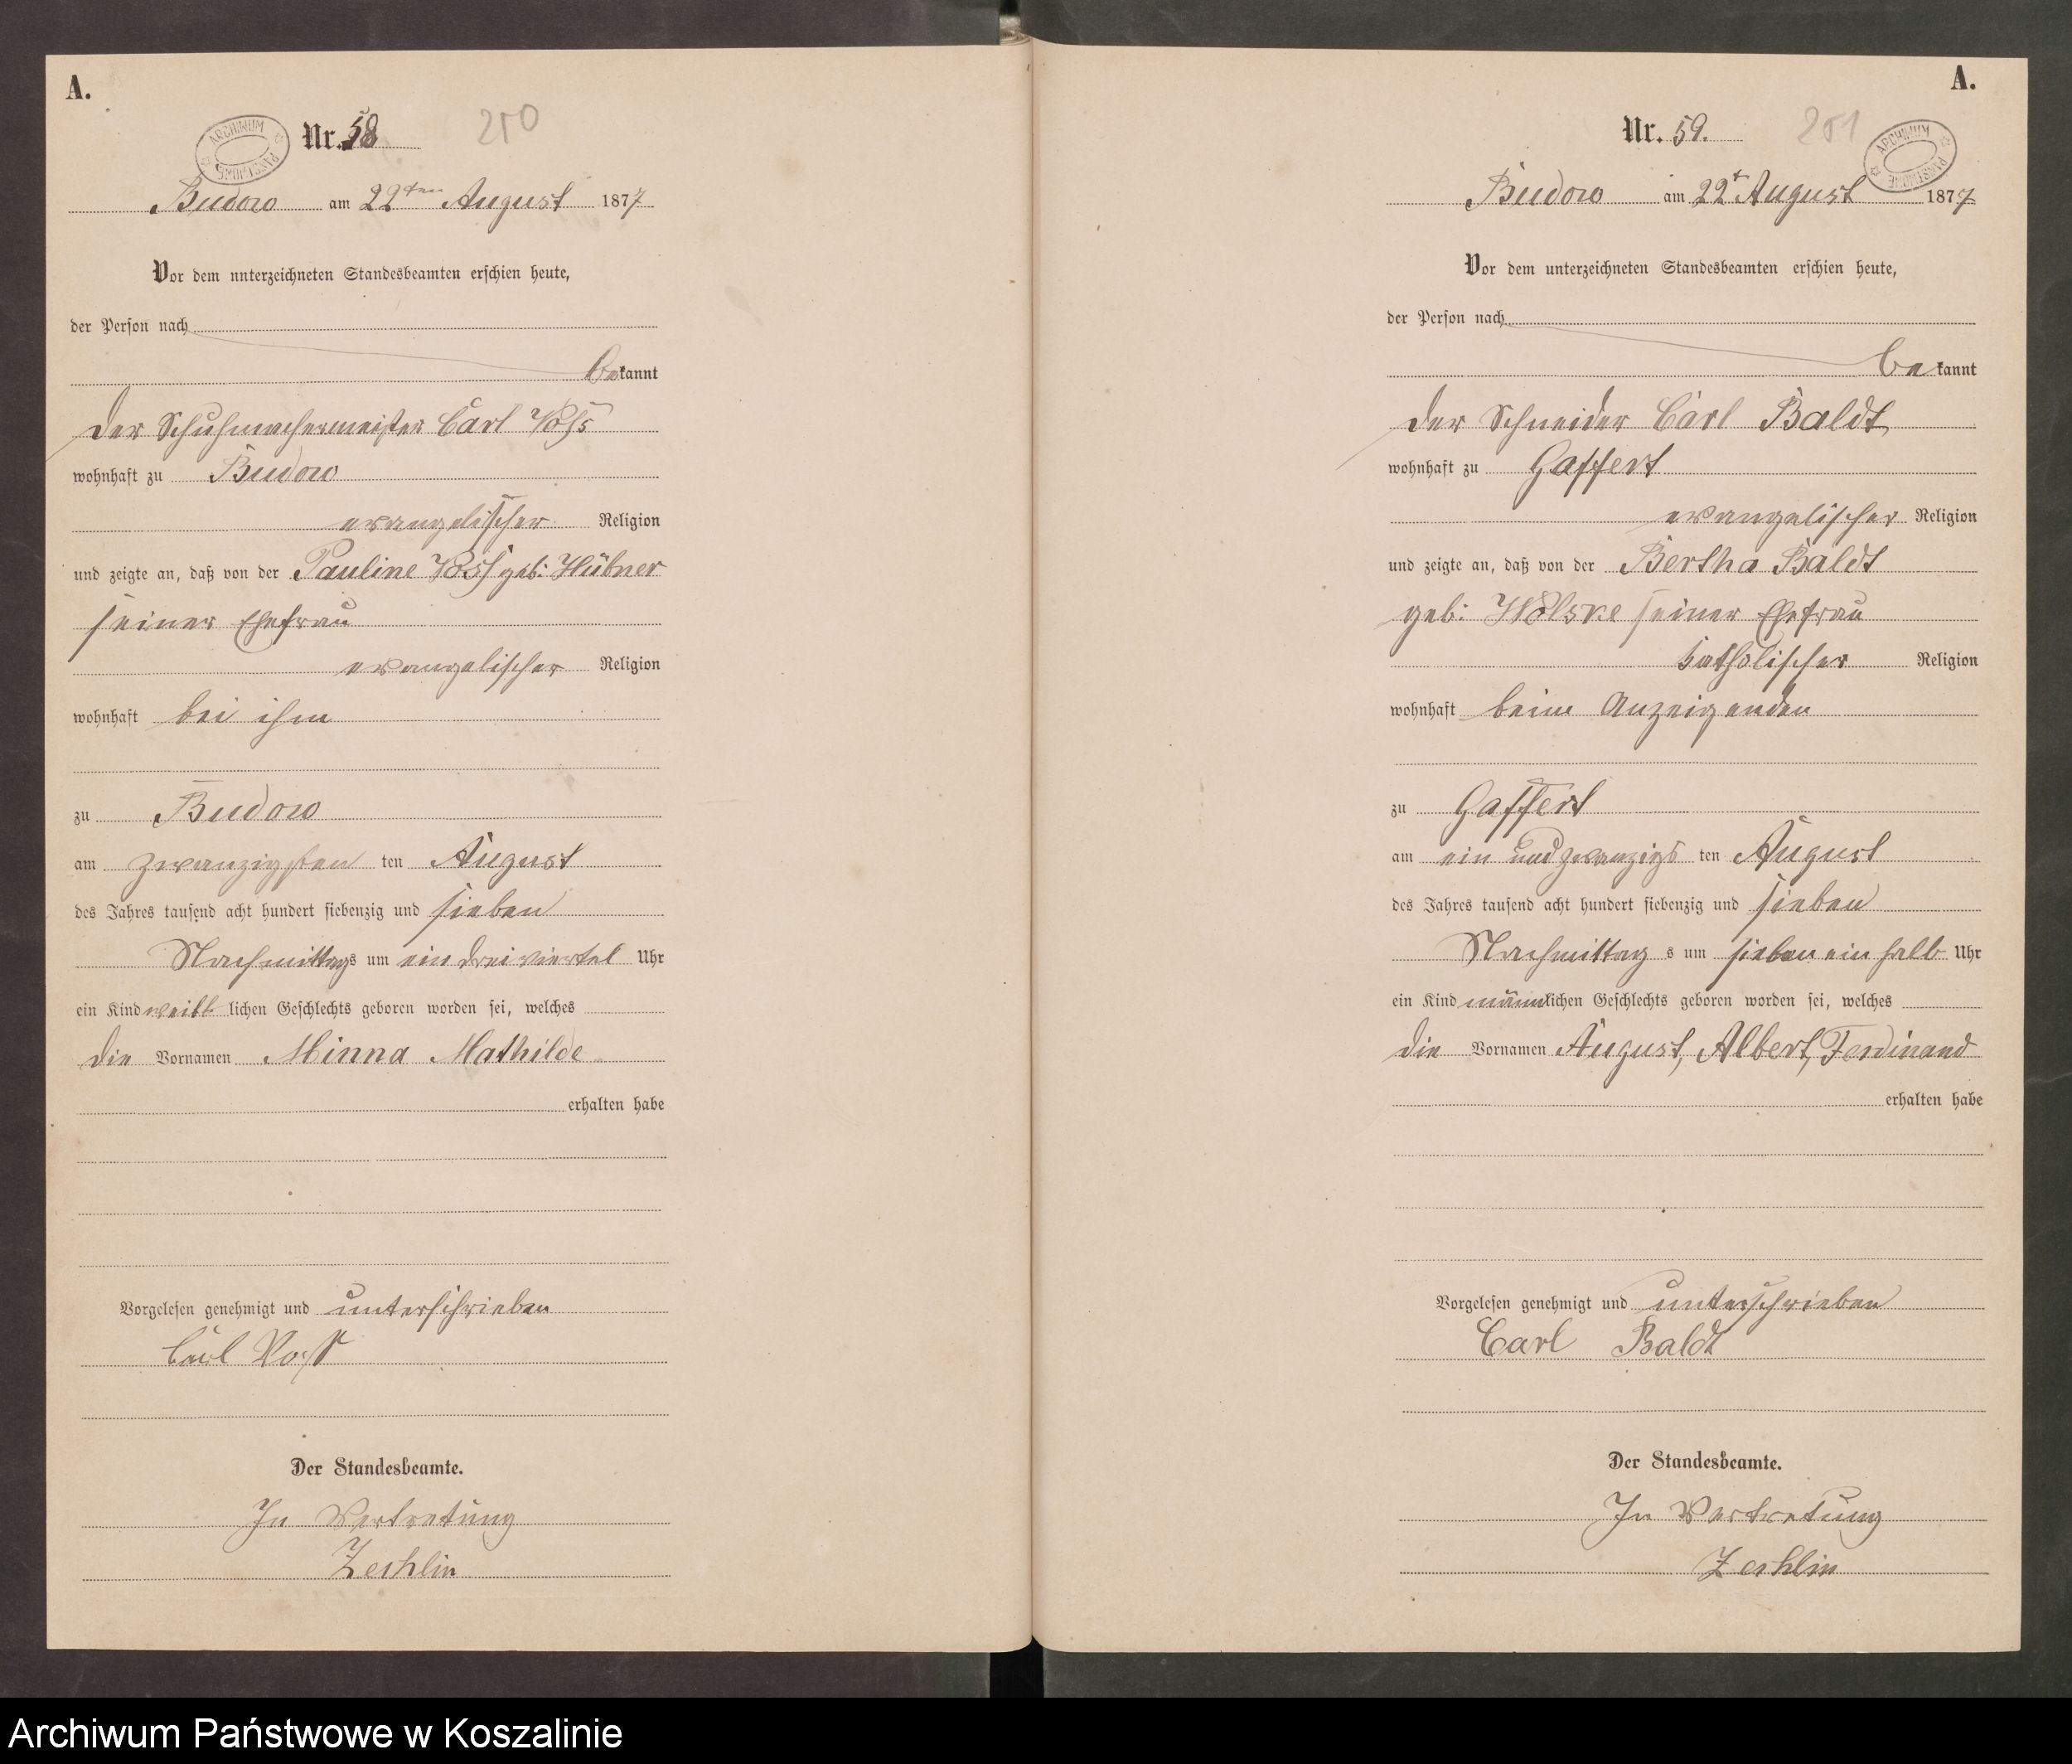 A.
Nr. 58
250
ARCHIWUM PAŃSTWOWE
Budow am 22ten August 1877
Vor dem nnterzeichneten Standesbeamten erschien heute,
der Person nach
bekannt
der Schuhmachermeister Carl Voss
wohnhaft zu Budow
evangelischer Religion
und zeigte an, daß von der Pauline Voss geb: Hübner
seiner Ehefrau
evangelischer Religion
wohnhaft bei ihm
zu Budow
am zwanzigsten ten August
des Jahres tausend acht hundert siebenzig und sieben
Nachmittags um ein dreiviertel Uhr
ein Kind weiblichen Geschlechts geboren worden sei, welches
die Vornamen Minna Mathilde
erhalten habe
Vorgelesen genehmigt und unterschrieben
Carl Voss
Der Standesbeamte.
In Vertretung
Zechlin
A.
Nr. 59.
251
ARCHIWUM PAŃSTWOWE
Budow am 22t August 1877
Vor dem unterzeichneten Standesbeamten erschien heute,
der Person nach
bekannt
der Schneider Carl Baldt
wohnhaft zu Gaffert
evangelischer Religion
und zeigte an, daß von der Bertha Baldt
geb: Wolske seiner Ehefrau
katholischer Religion
wohnhaft beim Anzeigenden
zu Gaffert
am ein und zwanzigs ten August
des Jahres tausend acht hundert siebenzig und sieben
Nachmittag s um sieben ein halb Uhr
ein Kind männlichen Geschlechts geboren worden sei, welches
die Vornamen August, Albert, Ferdinand
erhalten habe
Vorgelesen genehmigt und unterschrieben
Carl Baldt
Der Standesbeamte.
In Vertretung
Zechlin
Archiwum Państwowe w Koszalinie